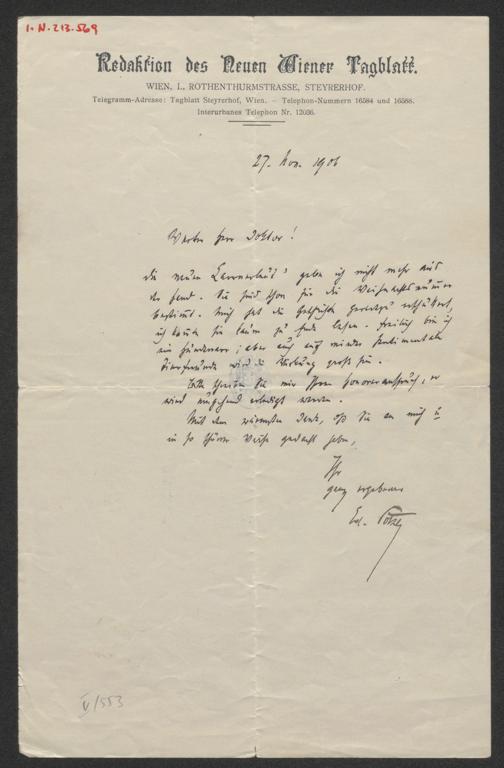 I.N. 213.569
Redaktion des Neuen Wiener Tagblatt.
WIEN, I., ROTHENTHURMSTRASSE, STEYRERHOF.
Telegramm-Adresse: Tagblatt Steyrerhof, Wien. — Telephon-Nummern 16584 und 16588.
Interurbanes Telephon Nr. 12036.
27. Nov. 1906
Werter Herr Doktor!
Die neuen " gebe ich nicht mehr aus
der Hand. Sie sind schon für die Weihnachtsnummer
bestimmt. Mich hat die Geschichte geradezu erschüttert,
ich konnte sie kaum zu Ende lesen. Freilich bin ich
ein Hundenarr; aber auch auf minder sentimentale
Tierfreunde wird die Wirkung groß sein.
Bitte schreiben Sie mir Ihren Honoraranspruch, er
wird umgehend erledigt werden.
Mit dem wärmsten Dank, daß Sie an mich
in so schöner Weise gedacht haben,
Ihr
ganz ergebener
Ed. Pötzl
V/553